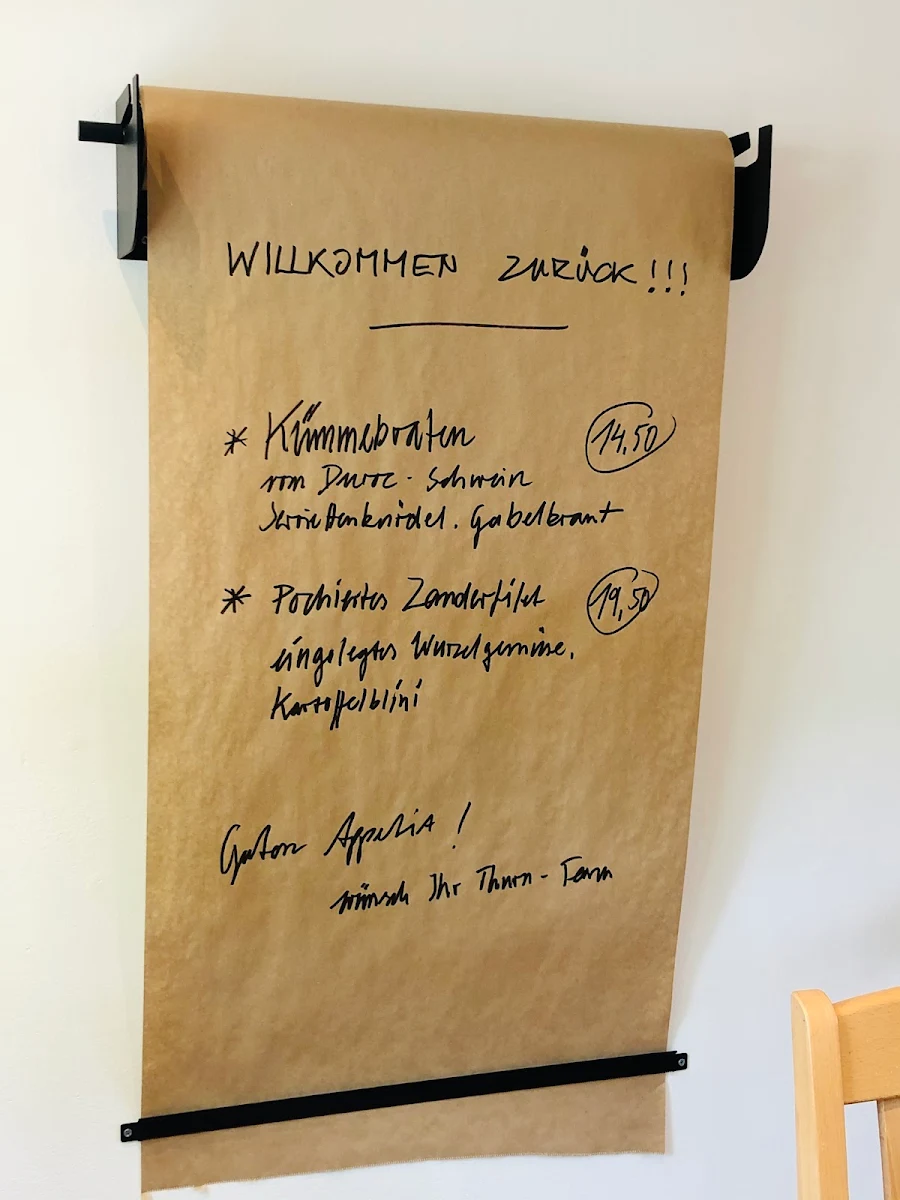 WILLKOMMEN ZURÜCK!!!
* Kümmebraten 14,50
vom Duroc-Schwein
Serviettenknödel. Gabelkraut
* Pochiertes Zanderfilet 19,50
eingelegtes Wurzelgemüse,
Kartoffelblini
Guten Appetit!
wünsch Ihr Thurn-Team